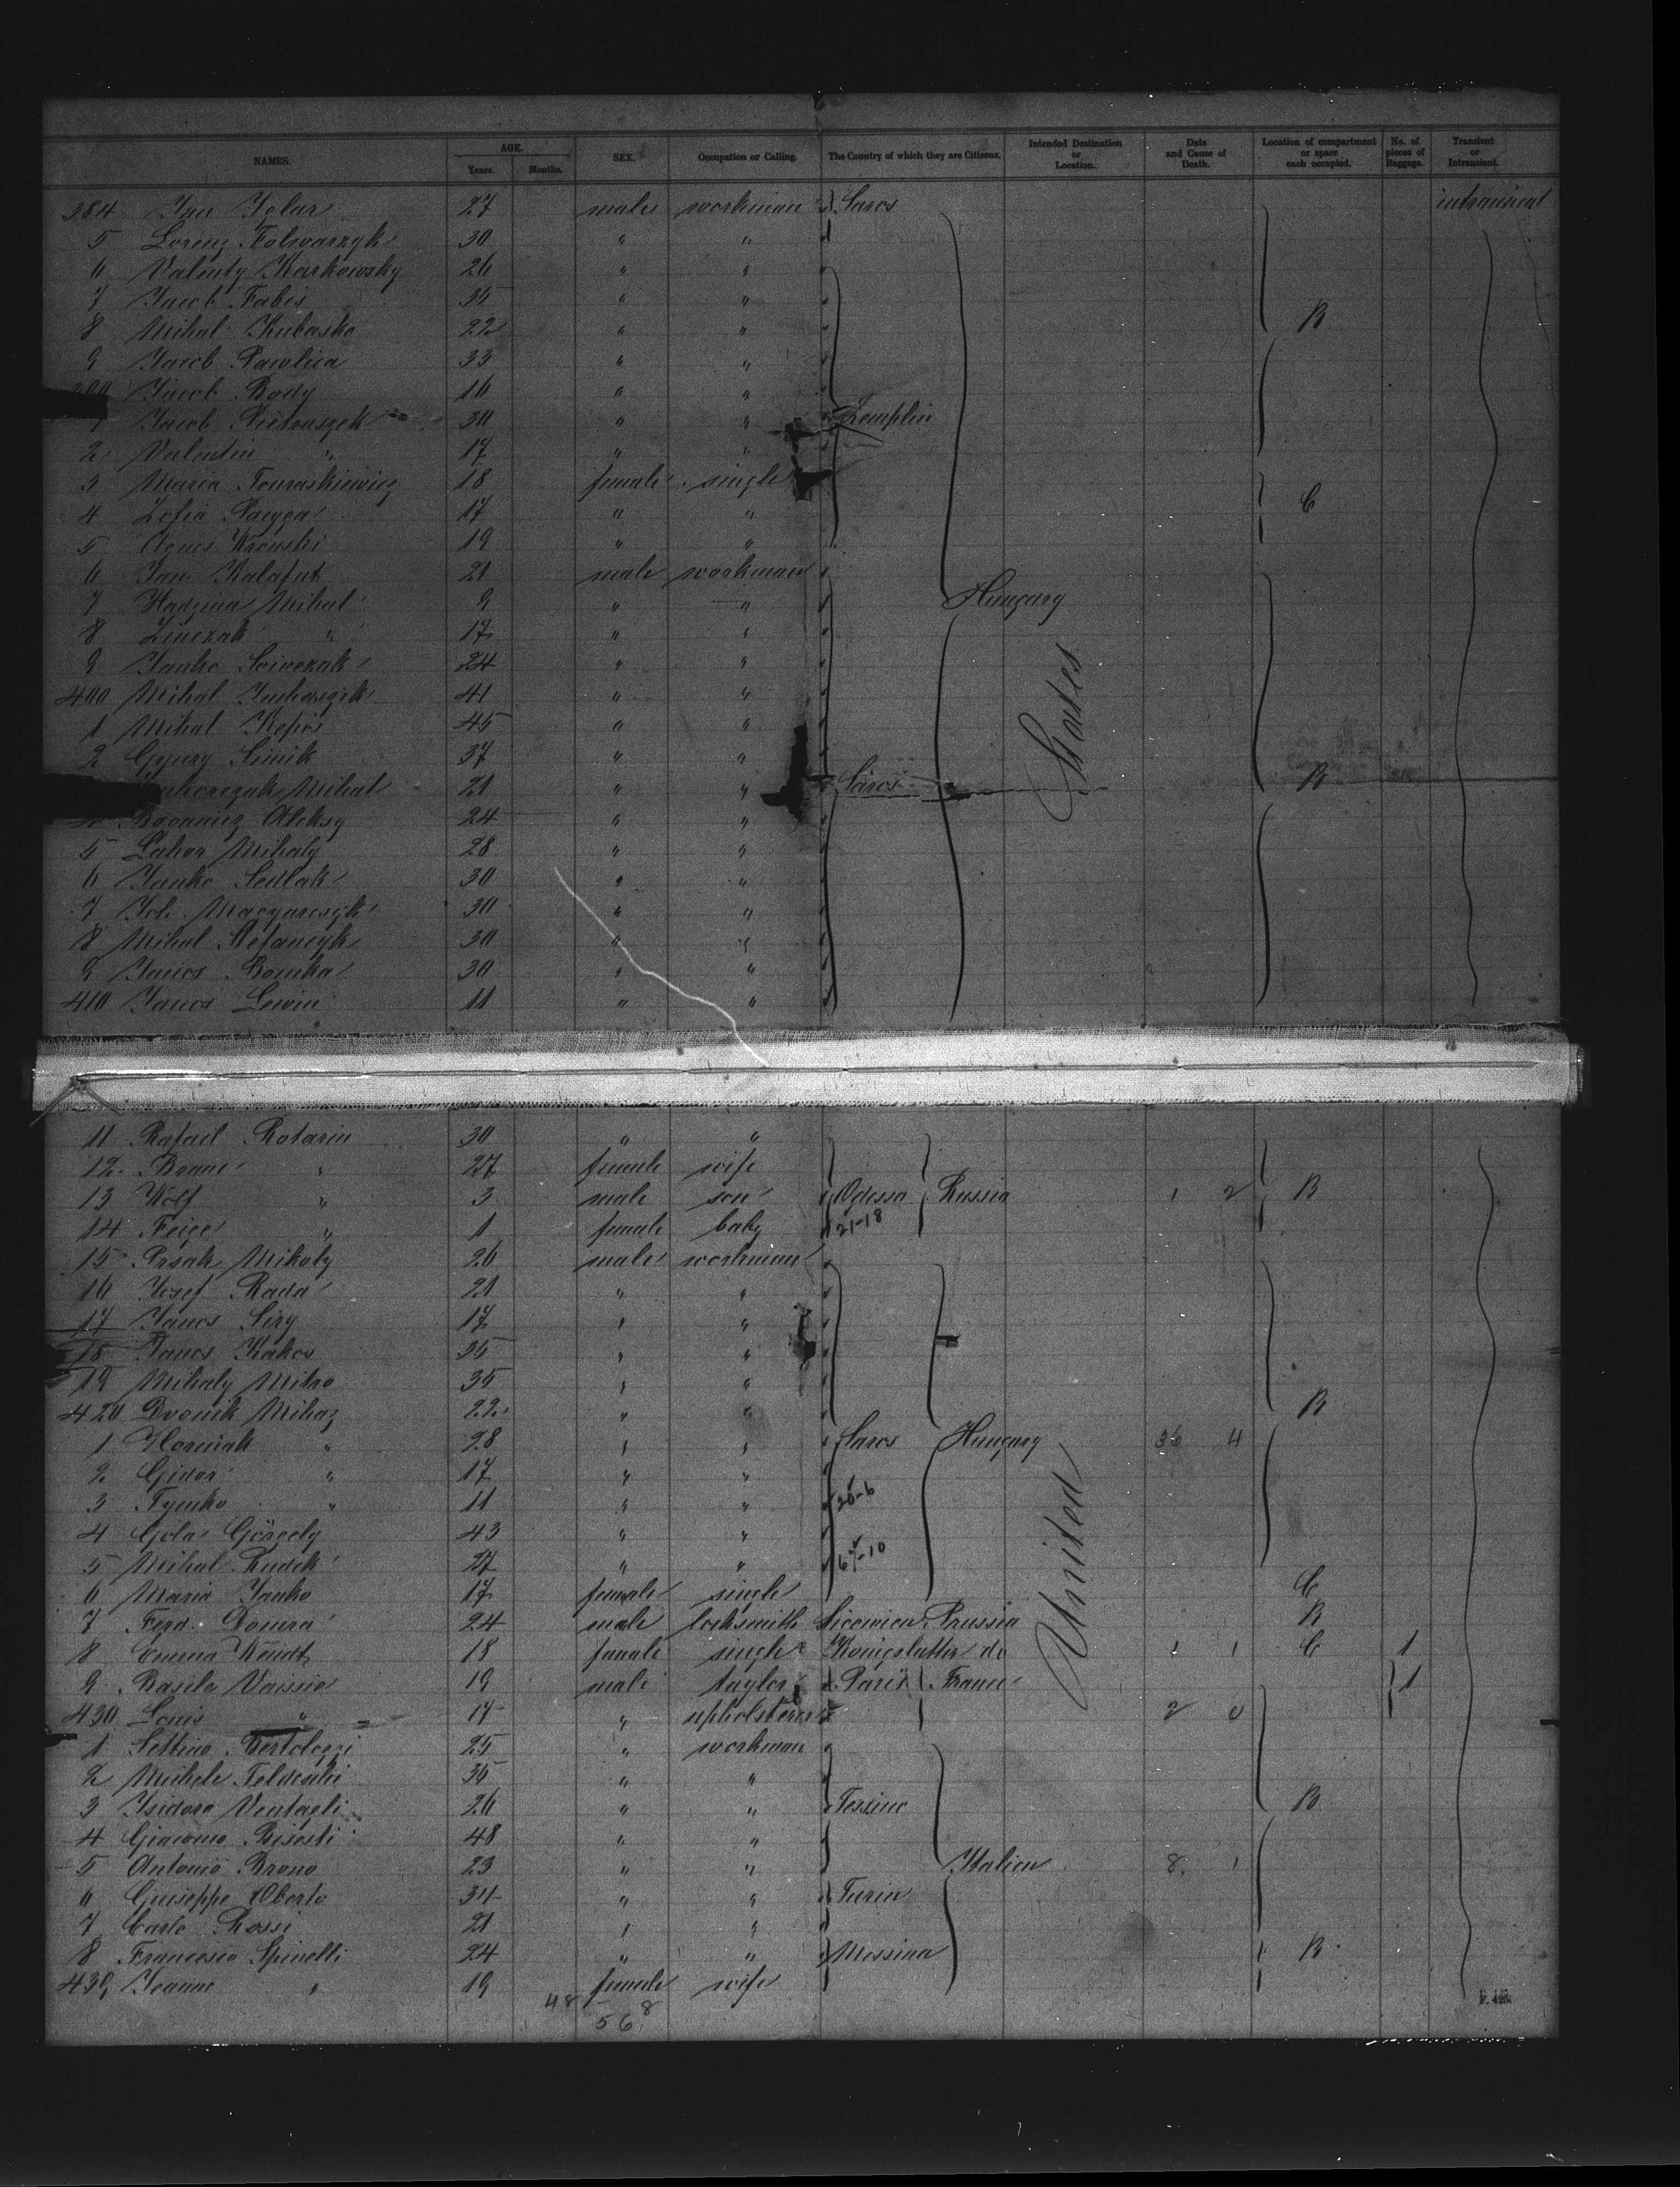 NAMES. AGE. Years. Months. SEX. Occupation or Calling. The Country of which they are Citizens. Intended Destination or Location. Date and Cause of Death. Location of compartment or space each occupied. No. of pieces of Baggage. Transient or Intransient.
384 Jan Iglar 27 male workman Saros intransient
5 Lorenz Folwarzyk 30 " "
6 Valenty Karkowsky 26 " "
7 Jacob Fabis 35 " "
8 Mihal Kubasko 22 " " B
9 Jacob Pawlica 33 " "
Jacob Body 16 " "
1 Jacob Pietruszek 30 " " Zemplin
2 Valentin " 17 " "
3 Maria 18 female single
4 Zofia 17 " " C
5 Agnes 19 " "
6 Jan Kalafut 21 male workman
7 Hadzina Mihal 9 " " Hungary
8 " 17 " "
9 Janko 24 " "
400 Mihal 41 " "
1 Mihal Kepis 45 " "
2 Gyury Simik 37 " "
Mihal 21 " " Saros States B
4 Aleksy 24 " "
5 Lahor Mihaly 28 " "
6 Janko Sedlak 30 " "
7 Joh. 30 " "
8 Mihal Stefancyk 30 " "
9 Janos Bomka 30 " "
410 Janos Lewin 11 " "
11 Rafael Rotarin 30 " "
12 " 27 female wife
13 Wolf " 3 male son Odessa Russia 1 2 B
14 Feige " 1 female baby 21-18
15 Prsak Mikoly 26 male workman
16 Josef Rada 21 " "
17 Janos Siry 17 " "
18 Janos Kakos 35 " "
19 Mihaly Mitro 35 " "
420 Dvornik Mihaz 22 " " B
1 Horniak " 28 " " Saros Hungary 36 4
2 " 17 " "
3 " 11 " " 20-6
4 Gola Görgely 43 " "
5 Mihal Rudek 27 " " 67-10
6 Maria Janko 17 female single C
7 Ferd. Domra 24 male locksmith Prussia United B
8 Emma Wendt 18 female single Königslutter do 1 1 C 1
9 Basile Vaissie 19 male taylor Paris France 1
430 Louis " 17 " upholsterer 2 0
1 Settimo 25 " workman
2 Michele 35 " "
3 Isidoro Ventagli 26 " " Tessino B
4 Giacomo 48 " "
5 Antonio Brono 23 " " Italien 8 1
6 Guiseppe Oberto 34 " " Turin
7 Carlo Rossi 21 " "
8 Francesco Spinelli 24 " " Messina B
439 Jeanne " 19 female wife
48 56 8